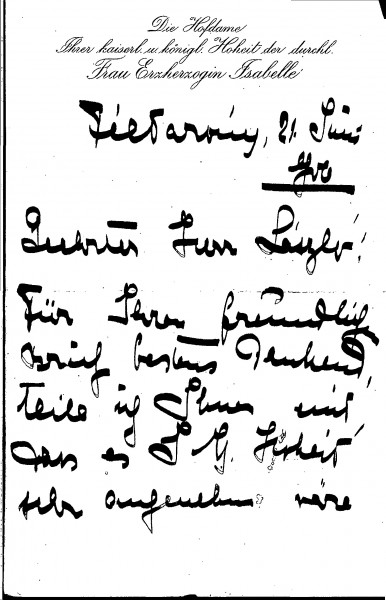 Die Hofdame
Ihrer kaiserl. u. königl. Hoheit der durchl.
Frau Erzherzogin Isabelle
Féltorony, 21. Juni
Geehrter Herr László!
Für Ihren freundlich
bestens dankend,
teile ich Ihnen mit
dass es I. K. Hoheit
sehr angenehm wäre